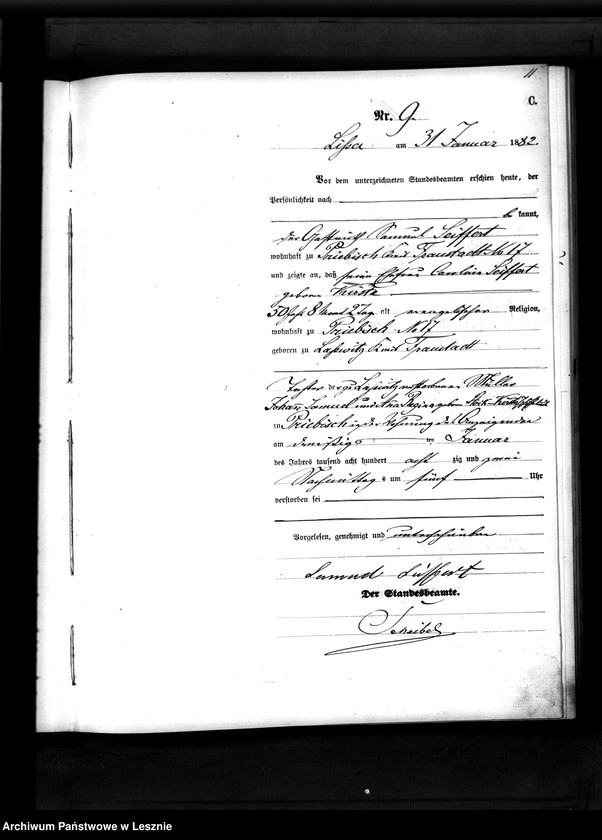 11
C.
Nr. 9
Lissa am 31 Januar 1882.
Vor dem unterzeichneten Standesbeamten erschien heute, der
Persönlichkeit nach
be kannt,
der Gastwirth Samuel Seiffert
wohnhaft zu Priebisch Kreis Fraustadt No 17
und zeigte an, daß seine Ehefrau Caroline Seiffert
geborne
50 Jahr 8 Monat 2 Tag alt evangelischer Religion,
wohnhaft zu Priebisch No 17
geboren zu Laßwitz Kreis Fraustadt
Tochter der zu Laßwitz verstorbenen Müller
Johann Samuel und
zu Priebisch in der Wohnung des Anzeigenden
am dreißig ten Januar
des Jahres tausend acht hundert acht zig und zwei
Nachmittag s um fünf Uhr
verstorben sei
Vorgelesen, genehmigt und unterschrieben
Samuel Seiffert
Der Standesbeamte.
Scheibel
Archiwum Państwowe w Lesznie